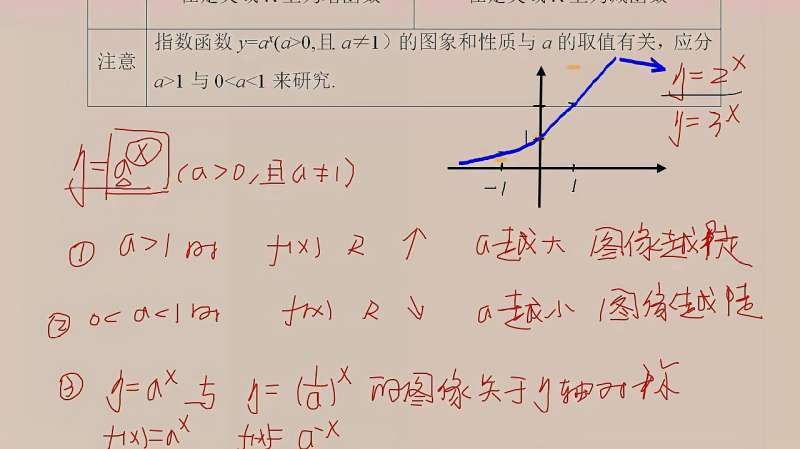 注意
指数函数 y=aˣ(a>0,且 a≠1）的图象和性质与 a 的取值有关，应分
a>1 与 0<a<1 来研究.
y=2ˣ
y=3ˣ
1
-1 1
y=aˣ (a>0,且a≠1)
① a>1时 f(x) R ↑ a越大 图像越陡
② 0<a<1时 f(x) R ↓ a越小 图像越陡
③ y=aˣ与 y=(1/a)ˣ 的图像关于y轴对称
f(x)=aˣ f(x)=a⁻ˣ